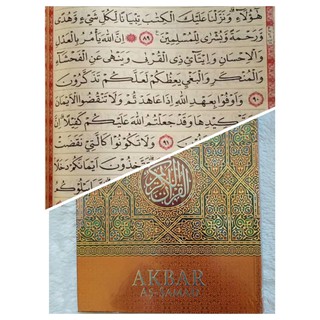 هٰٓؤُلَاۤءِ وَنَزَّلْنَا عَلَيْكَ الْكِتٰبَ تِبْيَانًا لِّكُلِّ شَيْءٍ وَّهُدًى
وَّرَحْمَةً وَّبُشْرٰى لِلْمُسْلِمِيْنَ ٨٩ اِنَّ اللّٰهَ يَأْمُرُ بِالْعَدْلِ
وَالْاِحْسَانِ وَاِيْتَاۤئِ ذِى الْقُرْبٰى وَيَنْهٰى عَنِ الْفَحْشَاۤءِ
وَالْمُنْكَرِ وَالْبَغْيِ يَعِظُكُمْ لَعَلَّكُمْ تَذَكَّرُوْنَ ٩٠
وَاَوْفُوْا بِعَهْدِ اللّٰهِ اِذَا عَاهَدْتُّمْ وَلَا تَنْقُضُوا الْاَيْمَانَ
وَقَدْ جَعَلْتُمُ اللّٰهَ عَلَيْكُمْ كَفِيْلًا اِنَّ
٩١ وَلَا تَكُوْنُوْا كَالَّتِيْ نَقَضَتْ
تَتَّخِذُوْنَ اَيْمَانَكُمْ دَخَلًا
القرآن الكريم
AKBAR
AS-SAMAD